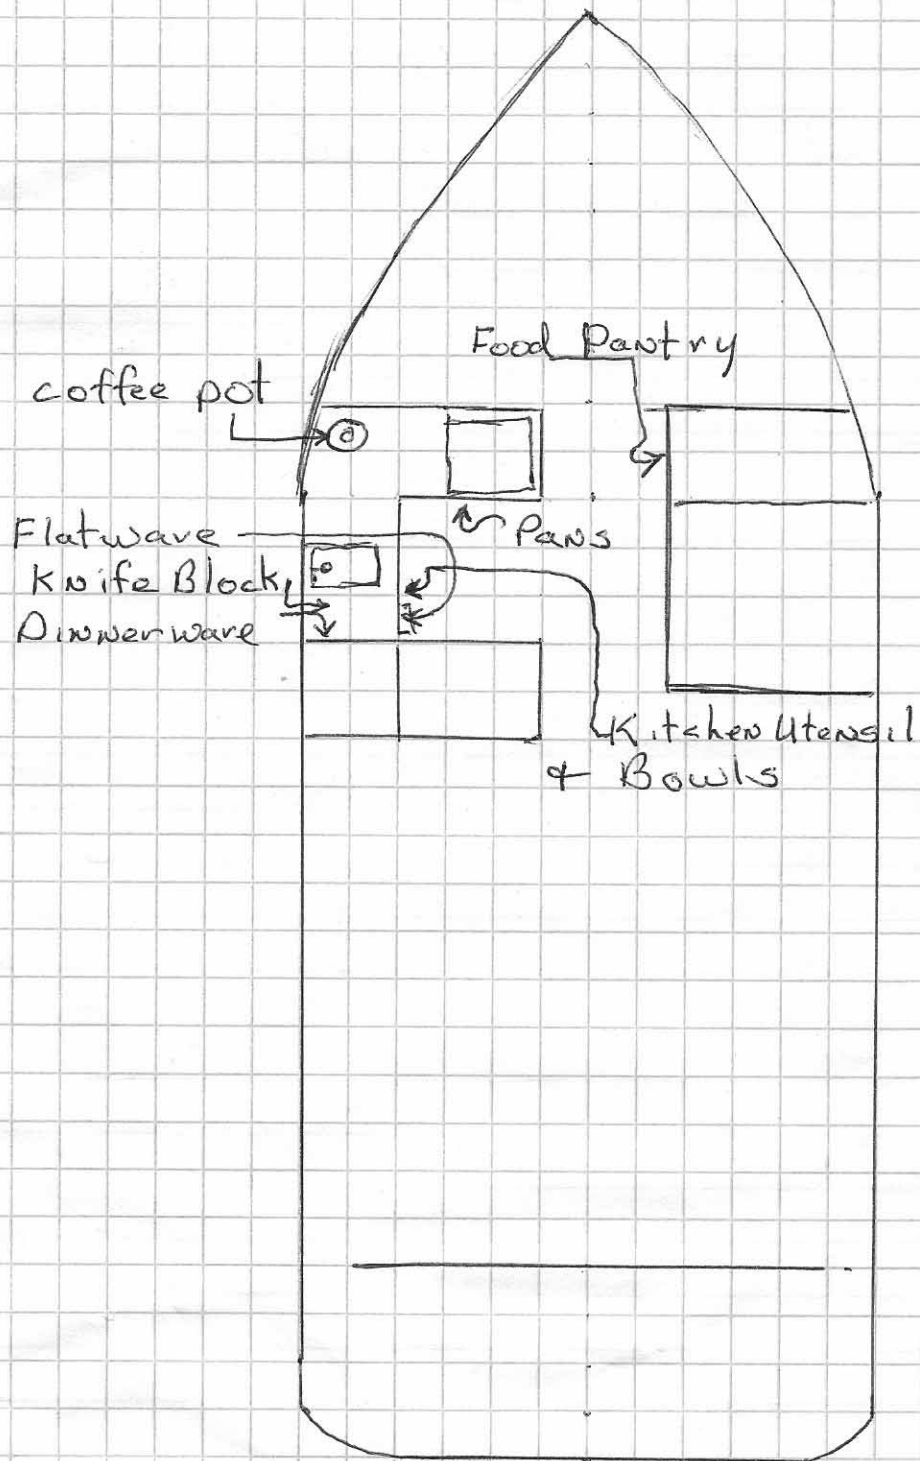 Food Pantry
coffee pot
Pans
Flatware
Knife Block
Dinnerware
Kitchen Utensil
& Bowls